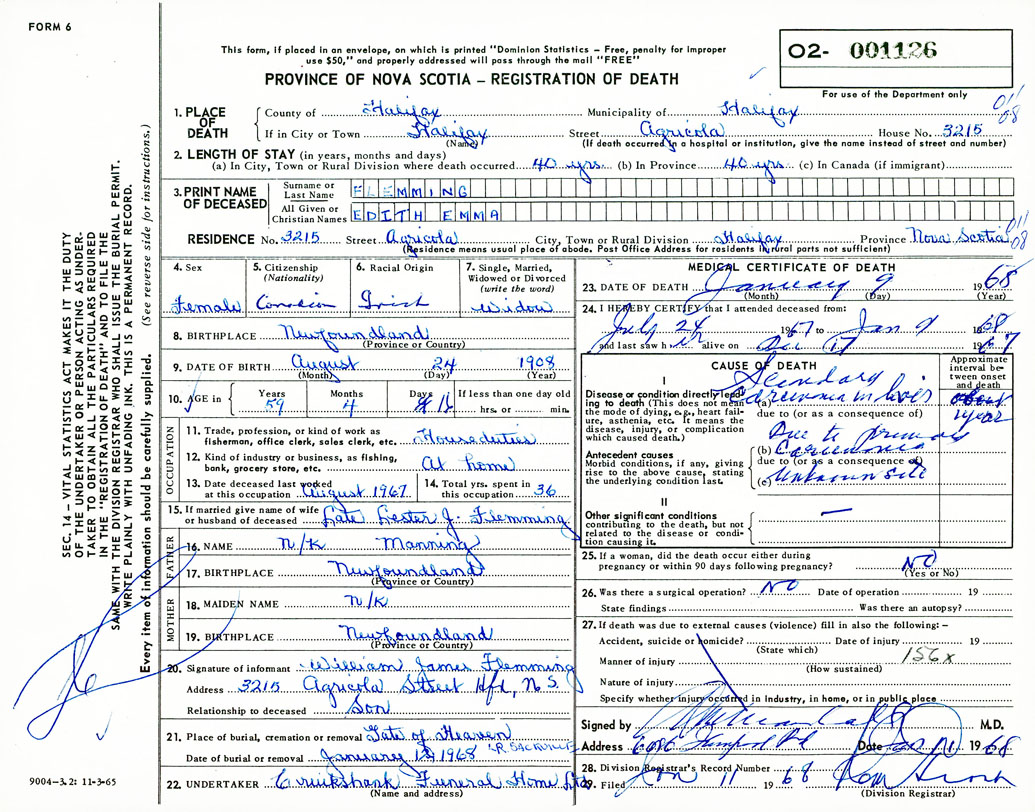 FORM 6
This form, if placed in an envelope, on which is printed "Dominion Statistics – Free, penalty for improper
use $50," and properly addressed will pass through the mail "FREE"
PROVINCE OF NOVA SCOTIA – REGISTRATION OF DEATH
O2- 001126
For use of the Department only
011
08
1. PLACE OF DEATH
County of Halifax Municipality of Halifax
If in City or Town Halifax Street Agricola House No. 3215
(Name) (If death occurred in a hospital or institution, give the name instead of street and number)
2. LENGTH OF STAY (in years, months and days)
(a) In City, Town or Rural Division where death occurred 40 yrs. (b) In Province 40 yrs (c) In Canada (if immigrant)
3. PRINT NAME OF DECEASED
Surname or Last Name FLEMMING
All Given or Christian Names EDITH EMMA
RESIDENCE No. 3215 Street Agricola City, Town or Rural Division Halifax Province Nova Scotia
011
08
(Residence means usual place of abode. Post Office Address for residents in rural parts not sufficient)
4. Sex
Female
5. Citizenship
(Nationality)
Canadian
6. Racial Origin
Irish
7. Single, Married,
Widowed or Divorced
(write the word)
Widow
8. BIRTHPLACE Newfoundland
(Province or Country)
9. DATE OF BIRTH August 24 1908
(Month) (Day) (Year)
10. AGE in Years 59 Months 4 Days If less than one day
hrs. or min.
OCCUPATION
11. Trade, profession, or kind of work as
fisherman, office clerk, sales clerk, etc. Housduties
12. Kind of industry or business, as fishing,
bank, grocery store, etc. At home
13. Date deceased last worked
at this occupation August 1967
14. Total yrs. spent in
this occupation 36
15. If married give name of wife
or husband of deceased Late Lester J. Flemming
FATHER
16. NAME N/K Manning
17. BIRTHPLACE Newfoundland
(Province or Country)
MOTHER
18. MAIDEN NAME N/K
19. BIRTHPLACE Newfoundland
(Province or Country)
20. Signature of informant William James Flemming
Address 3215 Agricola Street Hfx, N.S.
Relationship to deceased Son
21. Place of burial, cremation or removal Gate of Heaven
LR. SACKVILLE
Date of burial or removal January 12 1968
22. UNDERTAKER Cruikshank Funeral Home Ltd
(Name and address)
MEDICAL CERTIFICATE OF DEATH
23. DATE OF DEATH January 9 1968
(Month) (Day) (Year)
24. I HEREBY CERTIFY that I attended deceased from:
July 24 1967 to Jan 9 1968
and last saw her alive on Dec 19 67
CAUSE OF DEATH
Approximate
interval be-
tween onset
and death
I
Disease or condition directly lead-
ing to death (This does not mean
the mode of dying, e.g., heart fail-
ure, asthenia, etc. It means the
disease, injury, or complication
which caused death.)
Secondary
(a) Carcinoma in liver
about
1 year
due to (or as a consequence of)
Due to primary
Antecedent causes
Morbid conditions, if any, giving
rise to the above cause, stating
the underlying condition last.
(b) Carcinoma
due to (or as a consequence of)
(c) Unknown site
II
Other significant conditions
contributing to the death, but not
related to the disease or condi-
tion causing it. —
25. If a woman, did the death occur either during
pregnancy or within 90 days following pregnancy? NO
(Yes or No)
26. Was there a surgical operation? NO Date of operation 19
State findings Was there an autopsy?
27. If death was due to external causes (violence) fill in also the following: –
Accident, suicide or homicide? Date of injury 19
(State which)
156x
Manner of injury
(How sustained)
Nature of injury
Specify whether injury occurred in Industry, in home, or in public place
Signed by M.D.
Address Date 1968
28. Division Registrar's Record Number
29. Filed Jan 11 1968
(Division Registrar)
SEC. 14 – VITAL STATISTICS ACT MAKES IT THE DUTY
OF THE UNDERTAKER OR PERSON ACTING AS UNDER-
TAKER TO OBTAIN ALL THE PARTICULARS REQUIRED
IN THE "REGISTRATION OF DEATH" AND TO FILE THE
SAME WITH THE DIVISION REGISTRAR WHO SHALL ISSUE THE BURIAL PERMIT.
WRITE PLAINLY WITH UNFADING INK. THIS IS A PERMANENT RECORD.
Every item of information should be carefully supplied. (See reverse side for instructions.)
9004-3.2: 11-3-65